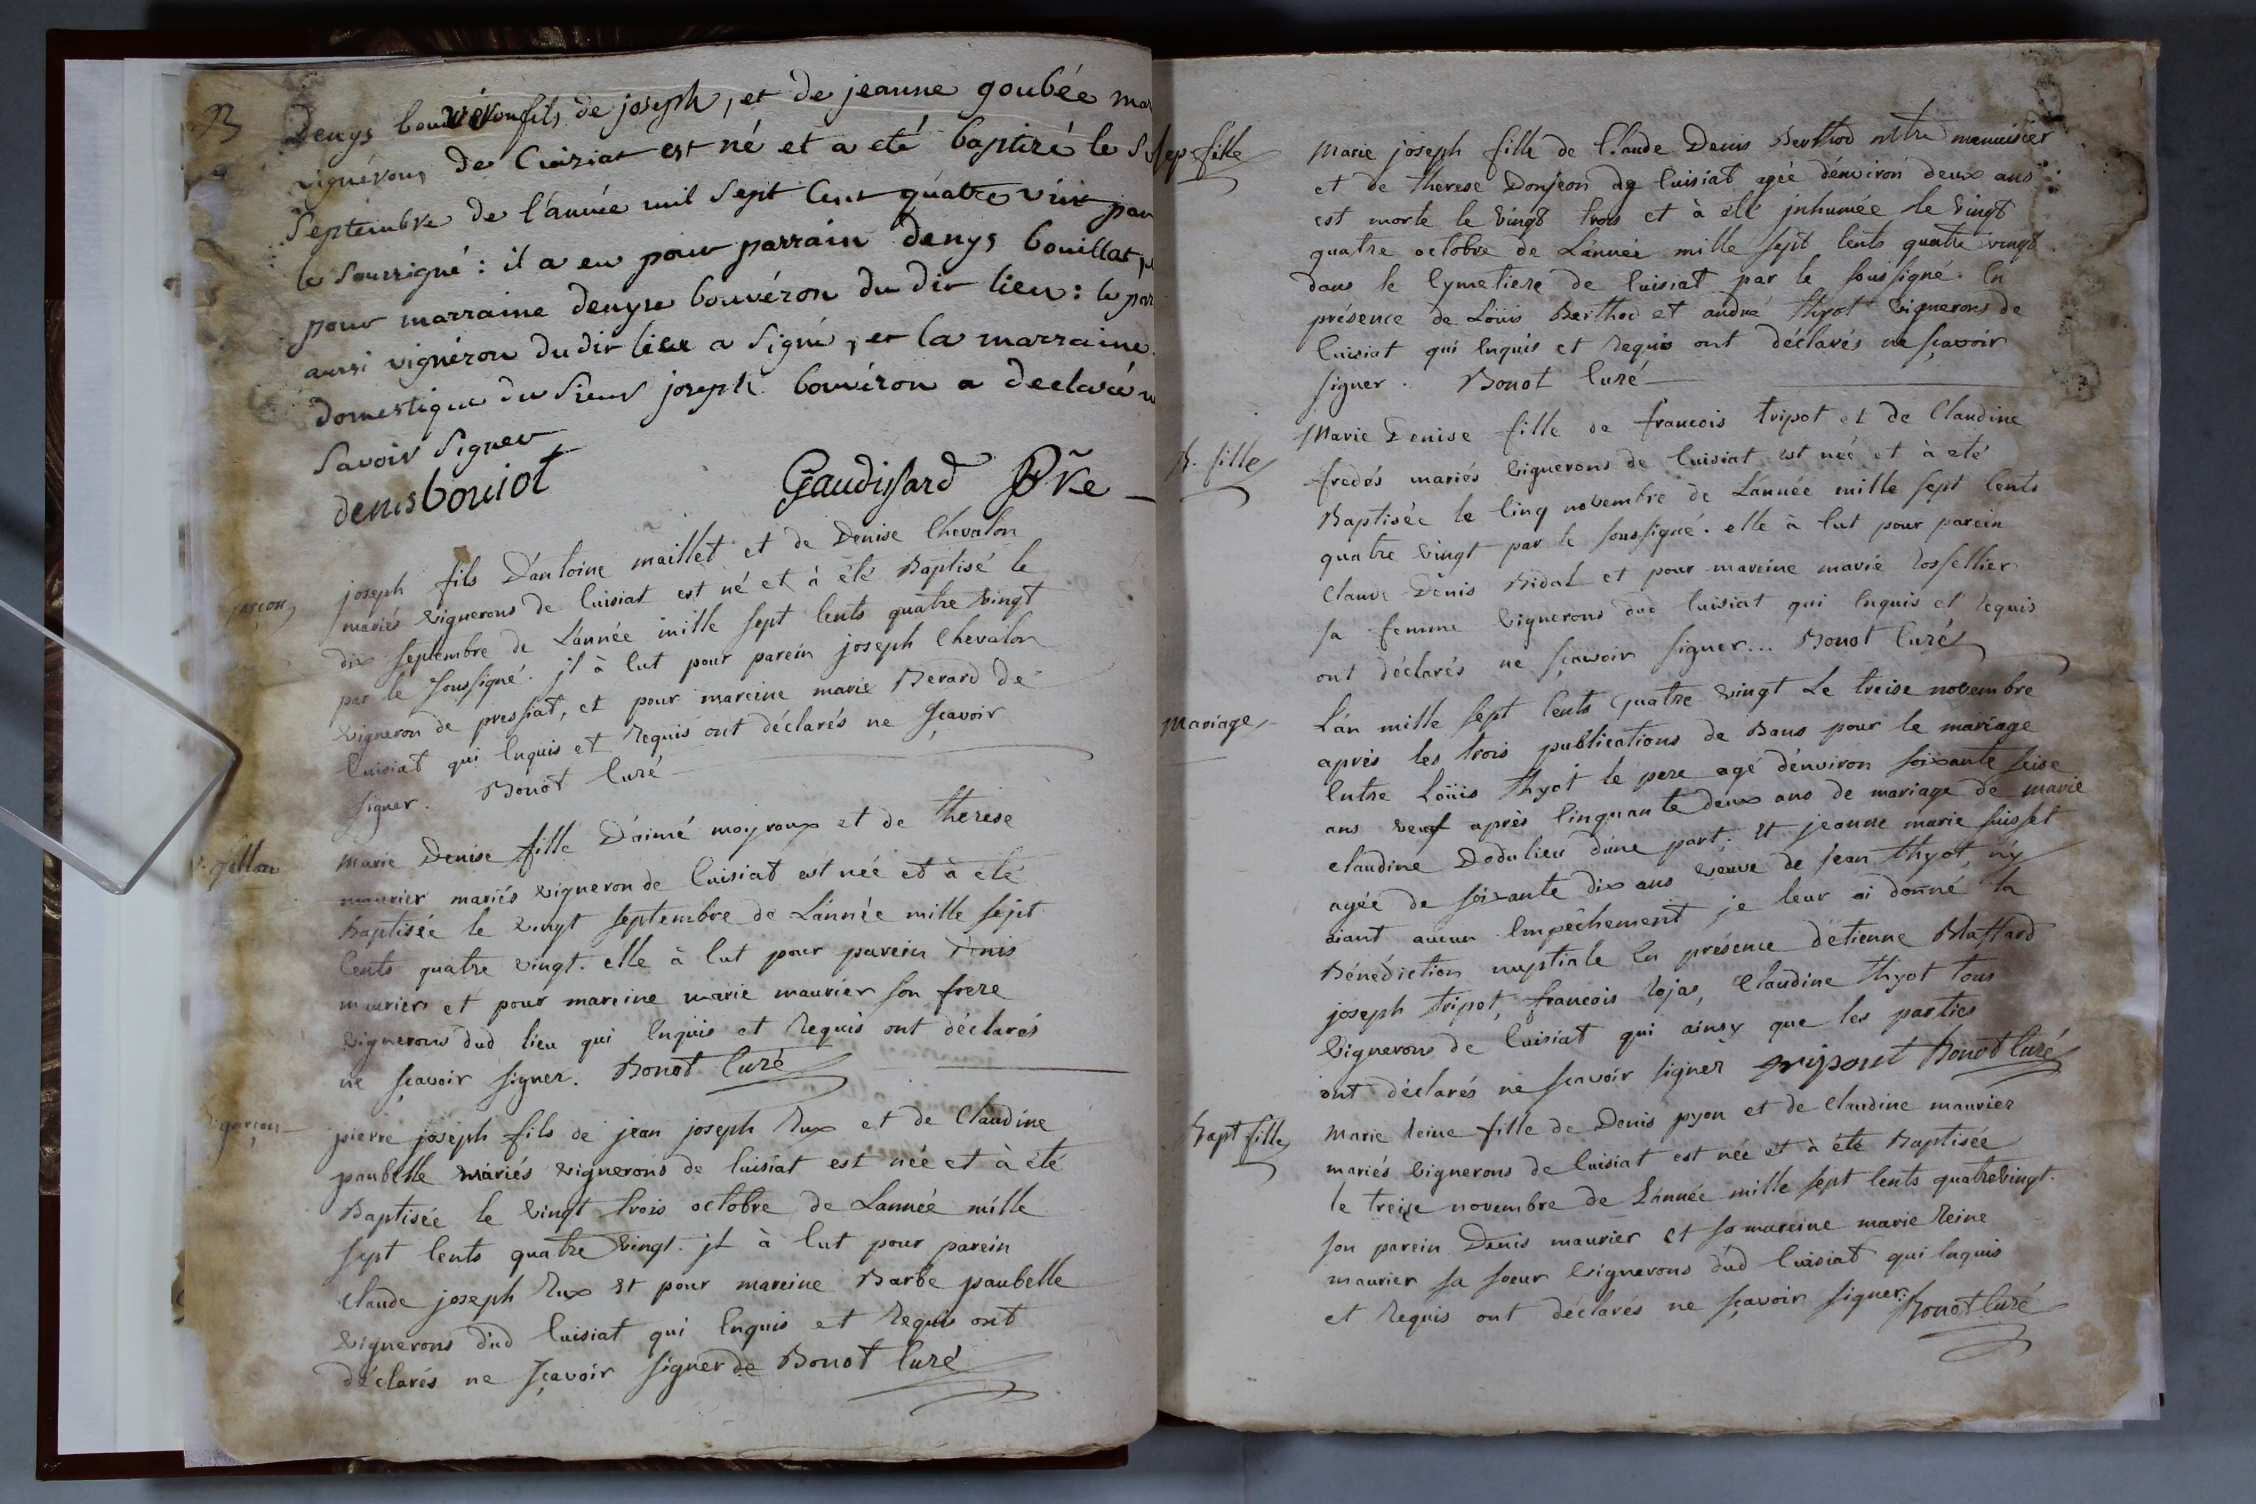 B
Denys bouvéron fils de joseph, et de jeanne goubée mar
vignérons de Cuiziat est né et a eté baptizé le
Septembre de l'année mil Sept Cent quatre vint par
le Soussigné : il a eu pour parrain denys bouillat
pour marraine denyse bouvéron du dit lieu : le par
aussi vignéron du dit lieu a Signé, et la marraine
domestique du Sieur joseph bouvéron a declaré n
Savoir Signer
denis bouiot Gaudissard Ptre
garçon
joseph fils D'antoine maillet et de Denise Chevalon
mariés vignerons de Cuisiat est né et à été Baptisé le
dix septembre de L'année mille sept Cents quatre vingt
par le soussigné. jl à Eut pour parein joseph Chevalon
vigneron de pressiat, et pour mareine marie Berard de
Cuisiat qui Enquis et Requis ont déclarés ne sçavoir
signer. Bonot Curé
fille
Marie Denise fille D'aimé moyroux et de therese
maurier mariés vigneron de Cuisiat est née et à été
Baptisée le vingt septembre de L'année mille sept
Cents quatre vingt. elle à Eut pour parein Denis
maurier et pour mareine marie maurier son frere
vignerons dud lieu qui Enquis et Requis ont déclarés
ne sçavoir signer. Bonot Curé
garcon
pierre joseph fils de jean joseph Rux et de Claudine
paubelle mariés vignerons de Cuisiat est née et à été
Baptisée le vingt trois octobre de L'année mille
sept Cents quatre vingt. jl à Eut pour parein
Claude joseph Rux et pour mareine Barbe paubelle
vignerons dud Cuisiat qui Enquis et Requis ont
déclarés ne sçavoir signer de Bonot Curé
sep. fille
Marie joseph fille de Claude Denis Berthod mtre menuisier
et de therese Donjeon de Cuisiat agée d'environ deux ans
est morte le vingt trois et à été jnhumée le vingt
quatre octobre de L'année mille sept Cents quatre vingt
dans le Cymetiere de Cuisiat par le soussigné. En
présence de Loüis Berthod et andré thyot vignerons de
Cuisiat qui Enquis et Requis ont déclarés ne sçavoir
signer. Bonot Curé
B. fille
Marie Denise fille de francois tripot et de Claudine
fredés mariés vignerons de Cuisiat est née et à eté
Baptisée le Cinq novembre de L'année mille sept Cents
quatre vingt par le soussigné. elle à Eut pour parein
Claude Denis Bidal et pour mareine marie Rossellier
sa femme vignerons dud Cuisiat qui Enquis et Requis
ont déclarés ne sçavoir signer... Bonot Curé
Mariage
L'an mille sept Cents quatre vingt Le treise novembre
après les trois publications de Bans pour le mariage
Entre Loüis thyot le pere agé d'environ soixante seise
ans veuf après Cinquante deux ans de mariage de marie
claudine Dodulieu d'une part. Et jeanne marie suisset
agée de soixante dix ans veuve de jean thyot, n'y
aiant aucun Empêchement je leur ai donné la
Bénédiction nuptiale En présence d'etienne Blaffard
joseph tripot, francois Rojas, Claudine thyot tous
vignerons de Cuisiat qui ainsy que les parties
ont déclarés ne sçavoir signer tripout Bonot Curé
Bapt fille
Marie Reine fille de Denis pyon et de Claudine maurier
mariés vignerons de Cuisiat est née et à été Baptisée
le treise novembre de L'année mille sept Cents quatrevingt.
son parein Denis maurier et sa mareine marie Reine
maurier sa soeur vignerons dud Cuisiat qui Enquis
et Requis ont déclarés ne sçavoir signer. Bonot Curé